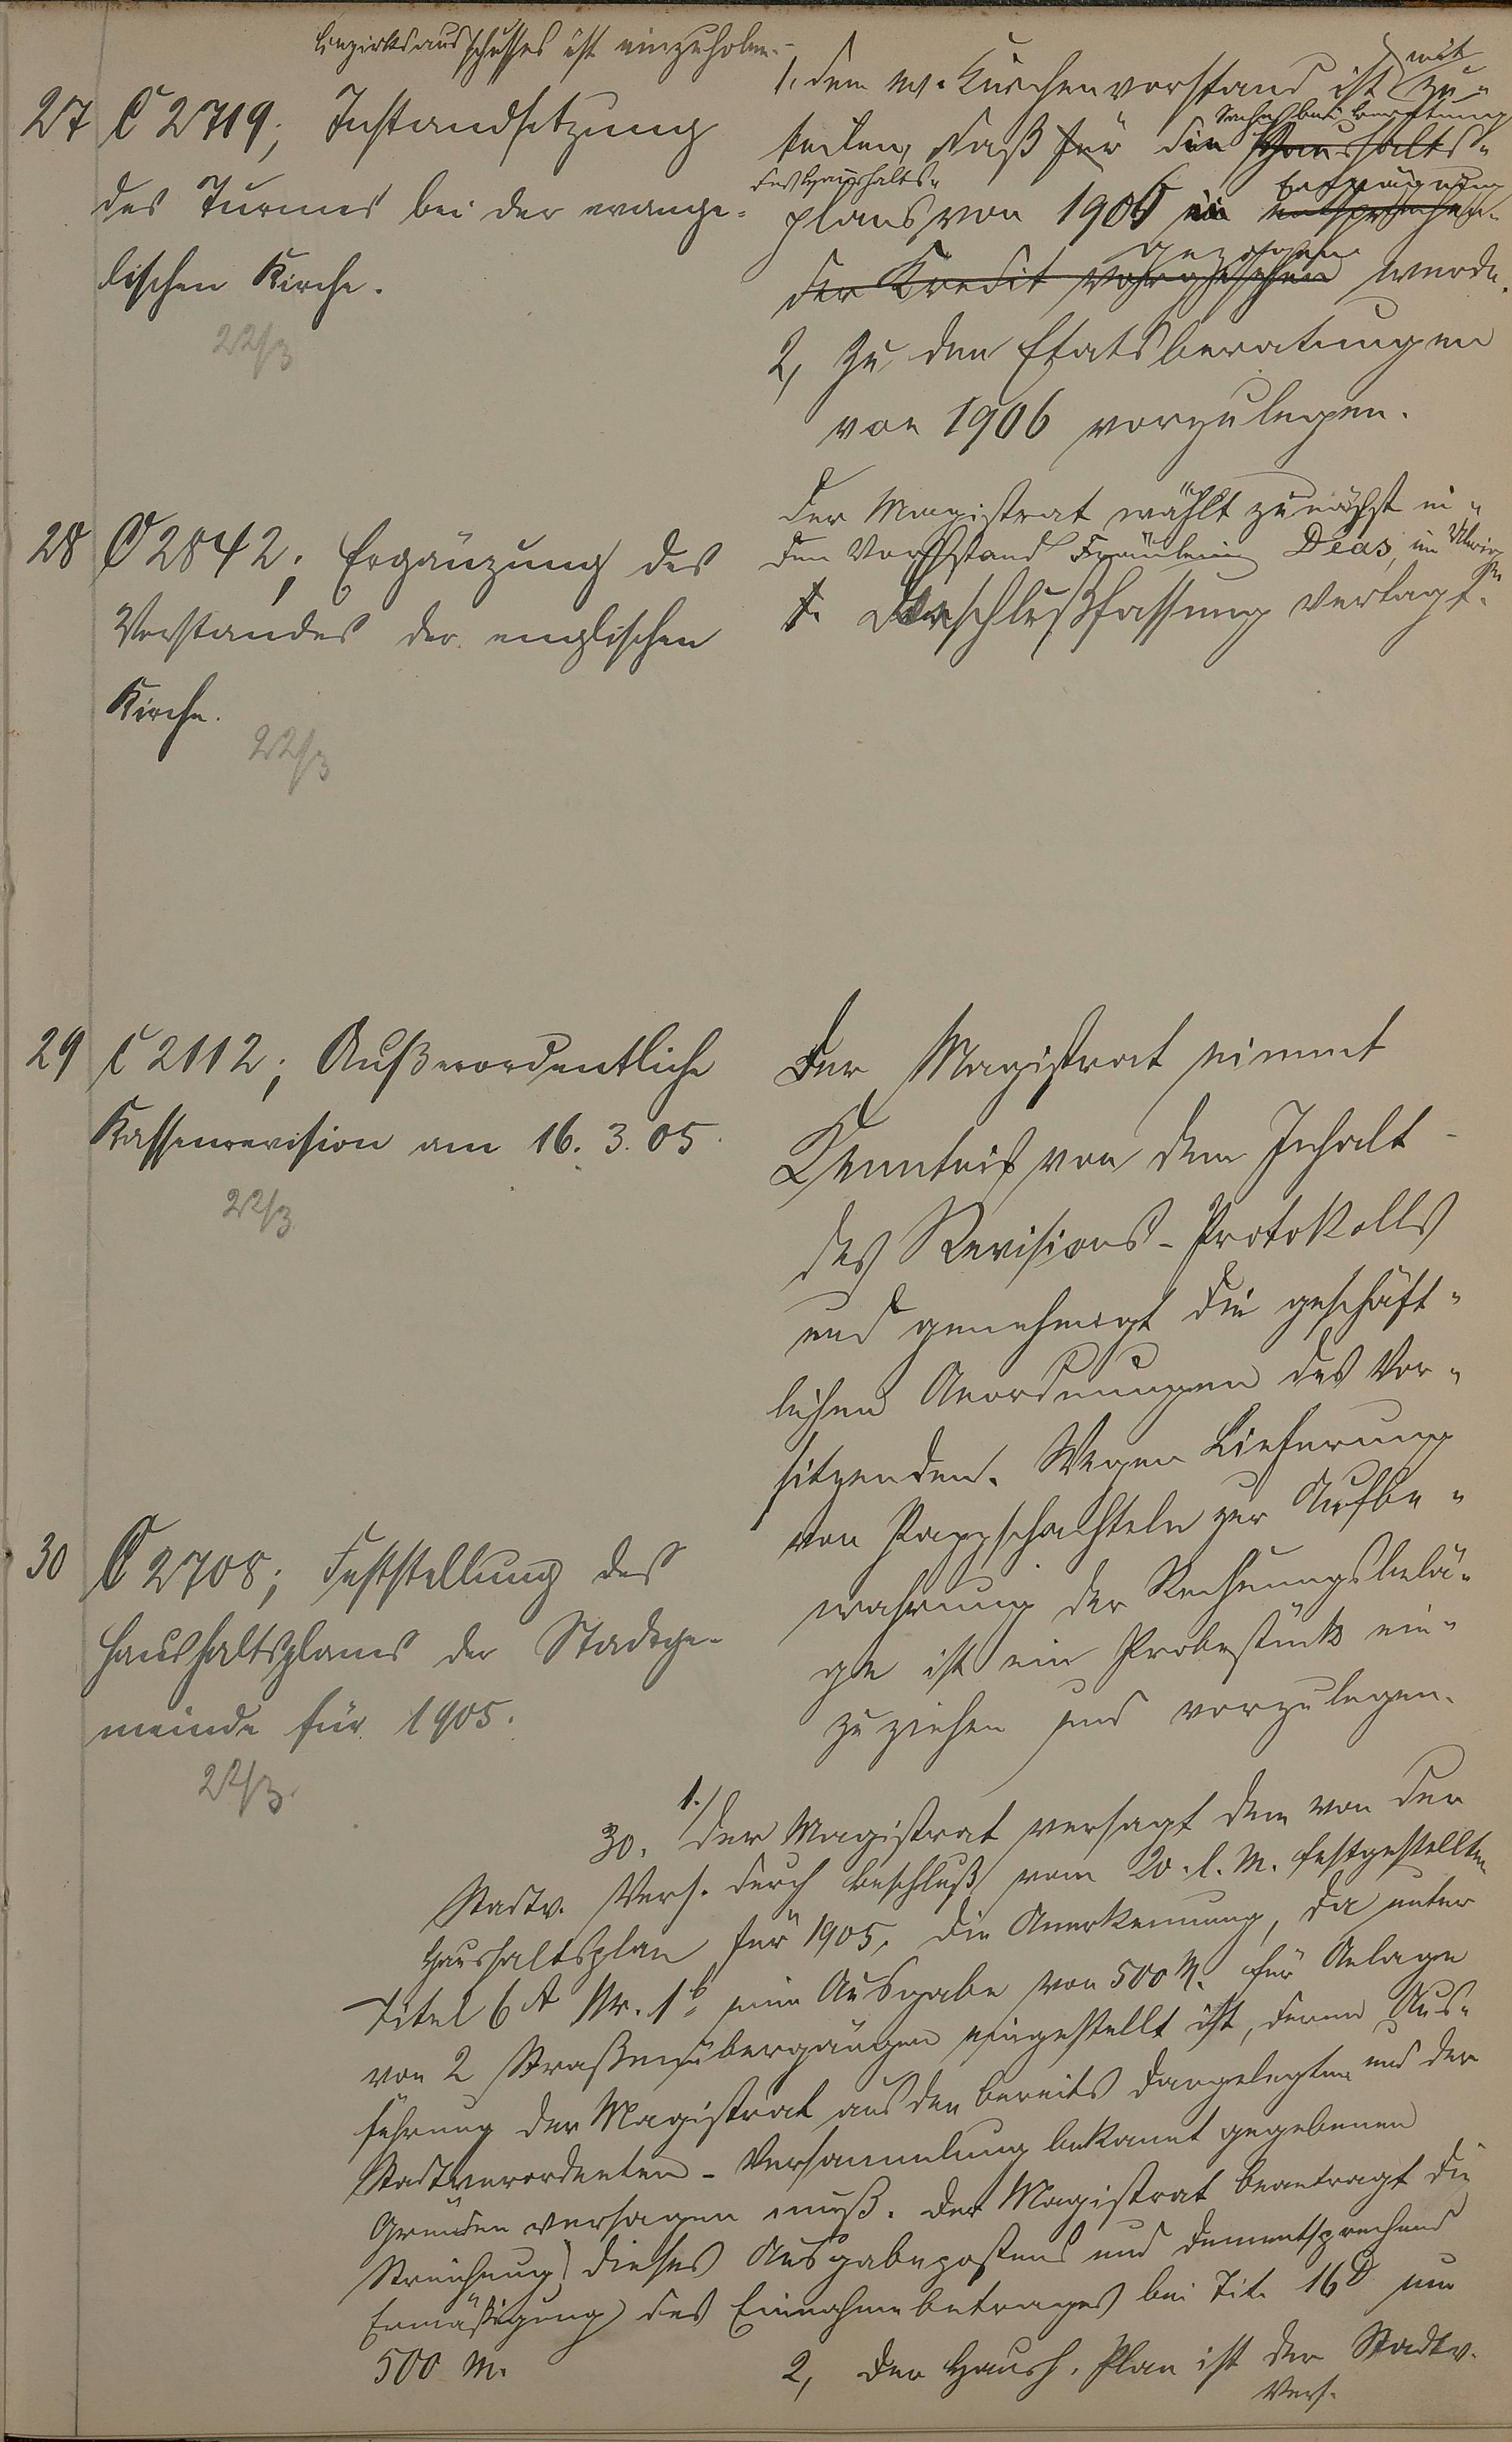 Bezirksausschusses ist einzuholen.-
27 C 2719; Instandsetzung
des Turmes bei der evange-
lischen Kirche.
22/3
1. dem ev. Kirchenvorstand ist mitzu-
teilen, daß für die Sache bei Beratung Haushalts-
des Haushalts-
plans von 1906 in Erwägung entsprechen-
der Kredit vorgesehen gezogen werde.
2, Zu den Etatsberatungen
von 1906 vorzulegen.
28 C 2842; Ergänzung des
Vorstandes der englischen
Kirche.
22/3
Der Magistrat wählt zunächst in
den Vorstand Fräulein Deas, im Übrigen
Beschlußfassung vertagt.
29 C 2112; Außerordentliche
Kassenrevision am 16. 3. 05.
22/3
Der Magistrat nimmt
Kenntnis von dem Inhalt
des Revisions-Protokolls
und genehmigt die geschäft-
lichen Anordnungen des Vor-
sitzenden. Wegen Lieferung
von Pappschachteln zur Aufbe-
wahrung der Rechnungsbelä-
ge ist ein Probestück ein-
zuziehen und vorzulegen.
30 C 2708; Feststellung des
Haushaltsplans der Stadtge-
meinde für 1905.
22/3.
30. 1./ Der Magistrat versagt dem von der
Stadtv. Vers. durch Beschluß vom 20. l. M. festgestellten
Haushaltsplan für 1905, die Anerkennung, da unter
Titel 6 A Nr. 1b eine Ausgabe von 500 M. für Anlage
von 2 Straßenübergängen eingestellt ist, deren Aus-
führung der Magistrat aus den bereits dargelegten und der
Stadtverordneten-Versammlung bekannt gegebenen
Gründen versagen muß. Der Magistrat beantragt die
Streichung dieses Ausgabepostens und dementsprechend
Ermäßigung des Einnahmebetrages bei Tit. 16 D um
500 M.
2, Der Haush. Plan ist der Stadtv.
Vers.